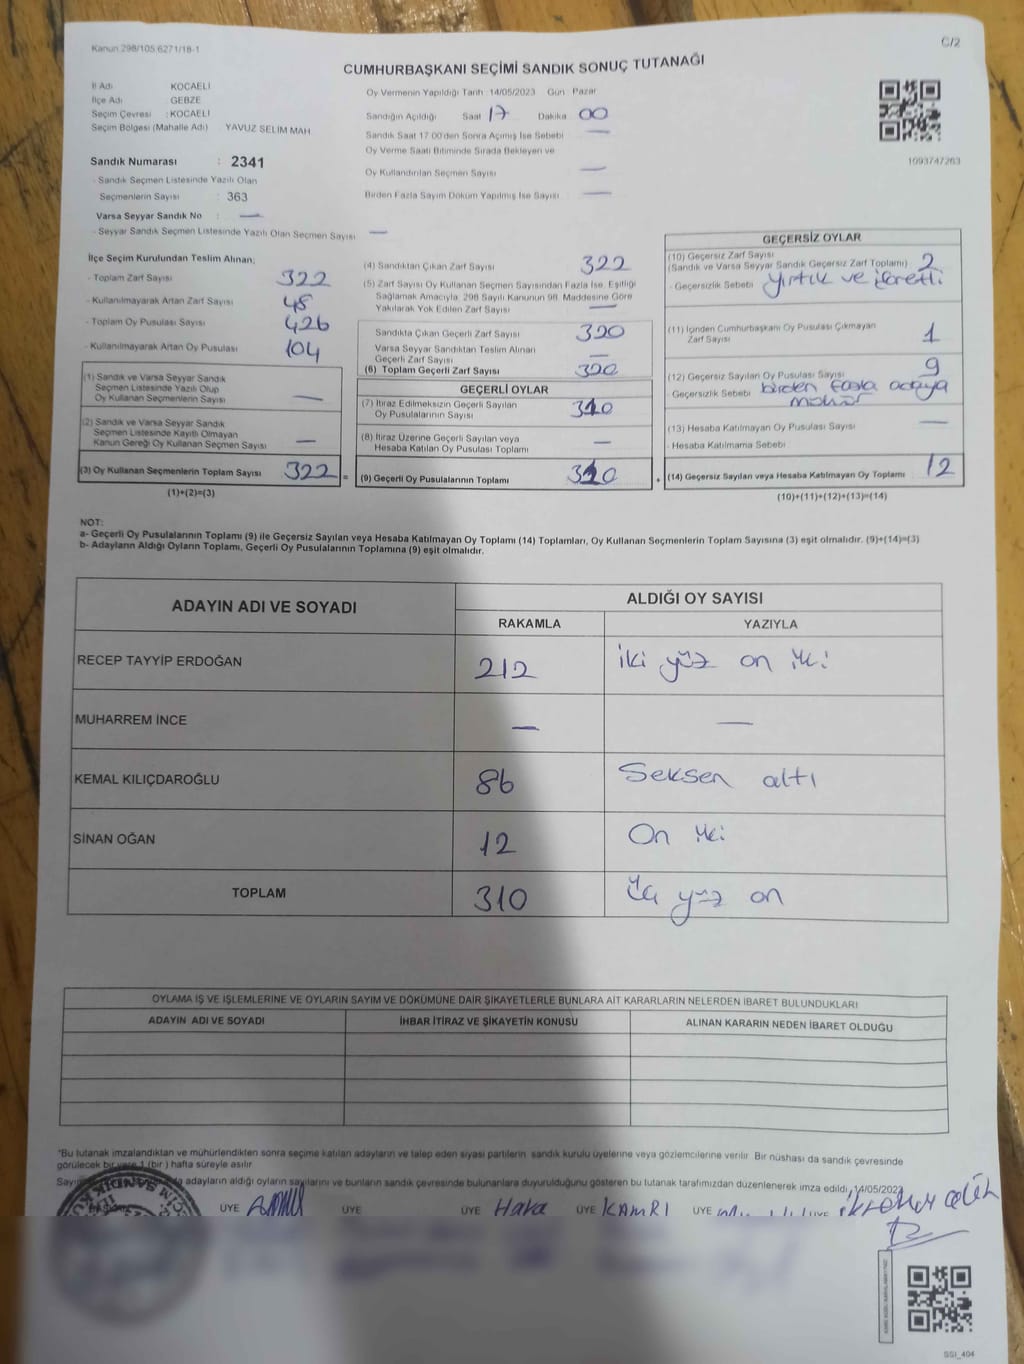 Kanun 298/105.6271/18-1
C/2
CUMHURBAŞKANI SEÇİMİ SANDIK SONUÇ TUTANAĞI
İl Adı KOCAELİ
İlçe Adı GEBZE
Seçim Çevresi : KOCAELİ
Seçim Bölgesi (Mahalle Adı) YAVUZ SELİM MAH
Sandık Numarası : 2341
- Sandık Seçmen Listesinde Yazılı Olan
Seçmenlerin Sayısı : 363
Varsa Seyyar Sandık No : —
- Seyyar Sandık Seçmen Listesinde Yazılı Olan Seçmen Sayısı —
Oy Vermenin Yapıldığı Tarih :14/05/2023 Gün Pazar
Sandığın Açıldığı Saat 17 Dakika 00
Sandık Saat 17.00'den Sonra Açılmış İse Sebebi —
Oy Verme Saati Bitiminde Sırada Bekleyen ve
Oy Kullandırılan Seçmen Sayısı —
Birden Fazla Sayım Döküm Yapılmış İse Sayısı —
1093747263
İlçe Seçim Kurulundan Teslim Alınan;
- Toplam Zarf Sayısı 322
- Kullanılmayarak Artan Zarf Sayısı 48
- Toplam Oy Pusulası Sayısı 426
- Kullanılmayarak Artan Oy Pusulası 104
(1) Sandık ve Varsa Seyyar Sandık
Seçmen Listesinde Yazılı Olup
Oy Kullanan Seçmenlerin Sayısı —
(2) Sandık ve Varsa Seyyar Sandık
Seçmen Listesinde Kayıtlı Olmayan
Kanun Gereği Oy Kullanan Seçmen Sayısı —
(3) Oy Kullanan Seçmenlerin Toplam Sayısı 322 =
(1)+(2)=(3)
(4) Sandıktan Çıkan Zarf Sayısı 322
(5) Zarf Sayısı Oy Kullanan Seçmen Sayısından Fazla İse, Eşitliği
Sağlamak Amacıyla, 298 Sayılı Kanunun 98. Maddesine Göre
Yakılarak Yok Edilen Zarf Sayısı —
Sandıkta Çıkan Geçerli Zarf Sayısı 320
Varsa Seyyar Sandıktan Teslim Alınan
Geçerli Zarf Sayısı —
(6) Toplam Geçerli Zarf Sayısı 320
GEÇERLİ OYLAR
(7) İtiraz Edilmeksizin Geçerli Sayılan
Oy Pusulalarının Sayısı 310
(8) İtiraz Üzerine Geçerli Sayılan veya
Hesaba Katılan Oy Pusulası Toplamı —
(9) Geçerli Oy Pusulalarının Toplamı 310 +
GEÇERSİZ OYLAR
(10) Geçersiz Zarf Sayısı
(Sandık ve Varsa Seyyar Sandık Geçersiz Zarf Toplamı) 2
- Geçersizlik Sebebi yırtık ve işaretli
(11) İçinden Cumhurbaşkanı Oy Pusulası Çıkmayan
Zarf Sayısı 1
(12) Geçersiz Sayılan Oy Pusulası Sayısı 9
Geçersizlik Sebebi birden fazla adaya
mühür
(13) Hesaba Katılmayan Oy Pusulası Sayısı —
- Hesaba Katılmama Sebebi
(14) Geçersiz Sayılan veya Hesaba Katılmayan Oy Toplamı 12
(10)+(11)+(12)+(13)=(14)
NOT:
a- Geçerli Oy Pusulalarının Toplamı (9) ile Geçersiz Sayılan veya Hesaba Katılmayan Oy Toplamı (14) Toplamları, Oy Kullanan Seçmenlerin Toplam Sayısına (3) eşit olmalıdır. (9)+(14)=(3)
b- Adayların Aldığı Oyların Toplamı, Geçerli Oy Pusulalarının Toplamına (9) eşit olmalıdır.
ADAYIN ADI VE SOYADI
ALDIĞI OY SAYISI
RAKAMLA YAZIYLA
RECEP TAYYİP ERDOĞAN 212 iki yüz on iki
MUHARREM İNCE — —
KEMAL KILIÇDAROĞLU 86 Seksen altı
SİNAN OĞAN 12 On iki
TOPLAM 310 Üç yüz on
OYLAMA İŞ VE İŞLEMLERİNE VE OYLARIN SAYIM VE DÖKÜMÜNE DAİR ŞİKAYETLERLE BUNLARA AİT KARARLARIN NELERDEN İBARET BULUNDUKLARI
ADAYIN ADI VE SOYADI İHBAR İTİRAZ VE ŞİKAYETİN KONUSU ALINAN KARARIN NEDEN İBARET OLDUĞU
*Bu tutanak imzalandıktan ve mühürlendikten sonra seçime katılan adayların ve talep eden siyasi partilerin sandık kurulu üyelerine veya gözlemcilerine verilir. Bir nüshası da sandık çevresinde
görülecek bir yere 1 (bir) hafta süreyle asılır
adayların aldığı oyların sayılarını ve bunların sandık çevresinde bulunanlara duyurulduğunu gösteren bu tutanak tarafımızdan düzenlenerek imza edildi, 14/05/2023
ÜYE ÜYE ÜYE ÜYE KAMRI ÜYE ÜYE
SSI_404